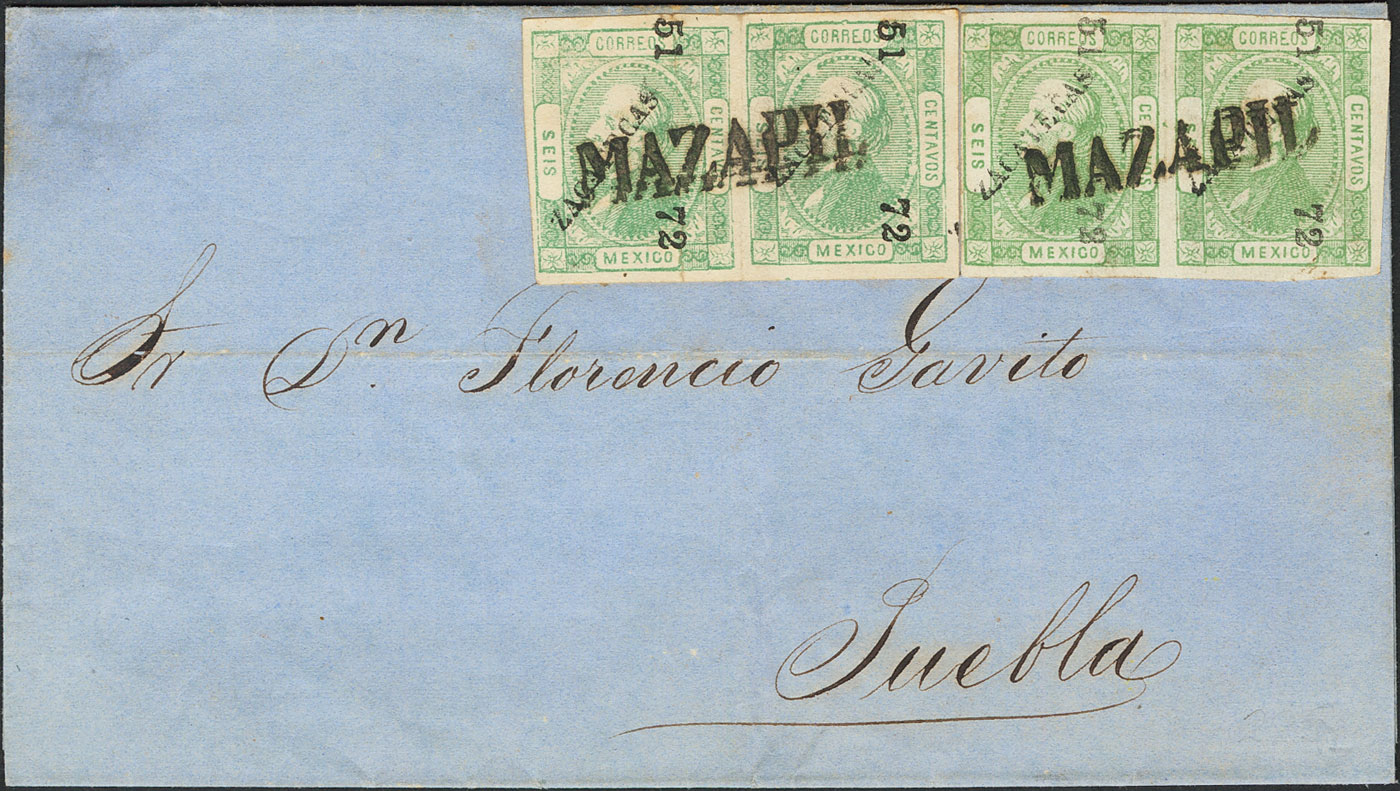 51 51 51 51
CORREOS CORREOS CORREOS CORREOS
ZACATECAS ZACATECAS ZACATECAS ZACATECAS
SEIS CENTAVOS SEIS CENTAVOS
MAZAPIL MAZAPIL
72 72 72 72
MEXICO MEXICO MEXICO MEXICO
Sr Dn. Florencio Gavito
Puebla